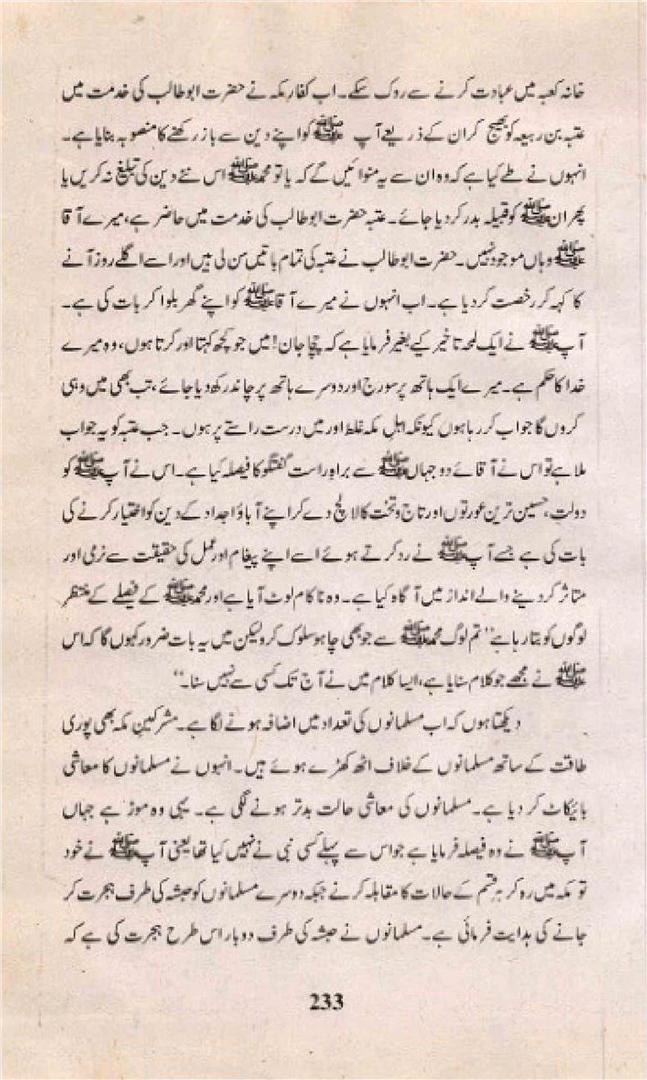 خانہ کعبہ میں عبادت کرنے سے روک سکے۔ اب کفارِ مکہ نے حضرت ابوطالب کی خدمت میں
عتبہ بن ربیعہ کو بھیج کر ان کے ذریعے آپ ﷺ کو اپنے دین سے باز رکھنے کا منصوبہ بنایا ہے۔
انہوں نے طے کیا ہے کہ وہ ان سے یہ منوائیں گے کہ یا تو محمد ﷺ اس نئے دین کی تبلیغ نہ کریں یا
پھر ان ﷺ کو قبیلہ بدر کر دیا جائے۔ عتبہ حضرت ابوطالب کی خدمت میں حاضر ہے، میرے آقا
ﷺ وہاں موجود نہیں۔ حضرت ابوطالب نے عتبہ کی تمام باتیں سن لی ہیں اور اسے اگلے روز آنے
کا کہہ کر رخصت کر دیا ہے۔ اب انہوں نے میرے آقا ﷺ کو اپنے گھر بلوا کر بات کی ہے۔
آپ ﷺ نے ایک لمحہ تاخیر کیے بغیر فرمایا ہے کہ چچا جان! میں جو کچھ کہتا اور کرتا ہوں، وہ میرے
خدا کا حکم ہے۔ میرے ایک ہاتھ پر سورج اور دوسرے ہاتھ پر چاند رکھ دیا جائے، تب بھی میں وہی
کروں گا جو اب کر رہا ہوں کیونکہ اہلِ مکہ غلط اور میں درست راستے پر ہوں۔ جب عتبہ کو یہ جواب
ملا ہے تو اس نے آقائے دو جہاں ﷺ سے براہِ راست گفتگو کا فیصلہ کیا ہے۔ اس نے آپ ﷺ کو
دولت، حسین ترین عورتوں اور تاج و تخت کا لالچ دے کر اپنے آباؤ اجداد کے دین کو اختیار کرنے کی
بات کی ہے جسے آپ ﷺ نے رد کرتے ہوئے اسے اپنے پیغام اور عمل کی حقیقت سے نرمی اور
متاثر کر دینے والے انداز میں آگاہ کیا ہے۔ وہ ناکام لوٹ آیا ہے اور محمد ﷺ کے فیصلے کے منتظر
لوگوں کو بتا رہا ہے ”تم لوگ محمد ﷺ سے جو بھی چاہو سلوک کرو لیکن میں یہ بات ضرور کہوں گا کہ اس
ﷺ نے مجھے جو کلام سنایا ہے، ایسا کلام میں نے آج تک کسی سے نہیں سنا۔“
دیکھتا ہوں کہ اب مسلمانوں کی تعداد میں اضافہ ہونے لگا ہے۔ مشرکینِ مکہ بھی پوری
طاقت کے ساتھ مسلمانوں کے خلاف اٹھ کھڑے ہوئے ہیں۔ انہوں نے مسلمانوں کا معاشی
بائیکاٹ کر دیا ہے۔ مسلمانوں کی معاشی حالت بدتر ہونے لگی ہے۔ یہی وہ موڑ ہے جہاں
آپ ﷺ نے وہ فیصلہ فرمایا ہے جو اس سے پہلے کسی نبی نے نہیں کیا تھا یعنی آپ ﷺ نے خود
تو مکہ میں رہ کر ہر قسم کے حالات کا مقابلہ کرنے جبکہ دوسرے مسلمانوں کو حبشہ کی طرف ہجرت کر
جانے کی ہدایت فرمائی ہے۔ مسلمانوں نے حبشہ کی طرف دو بار اس طرح ہجرت کی ہے کہ
233